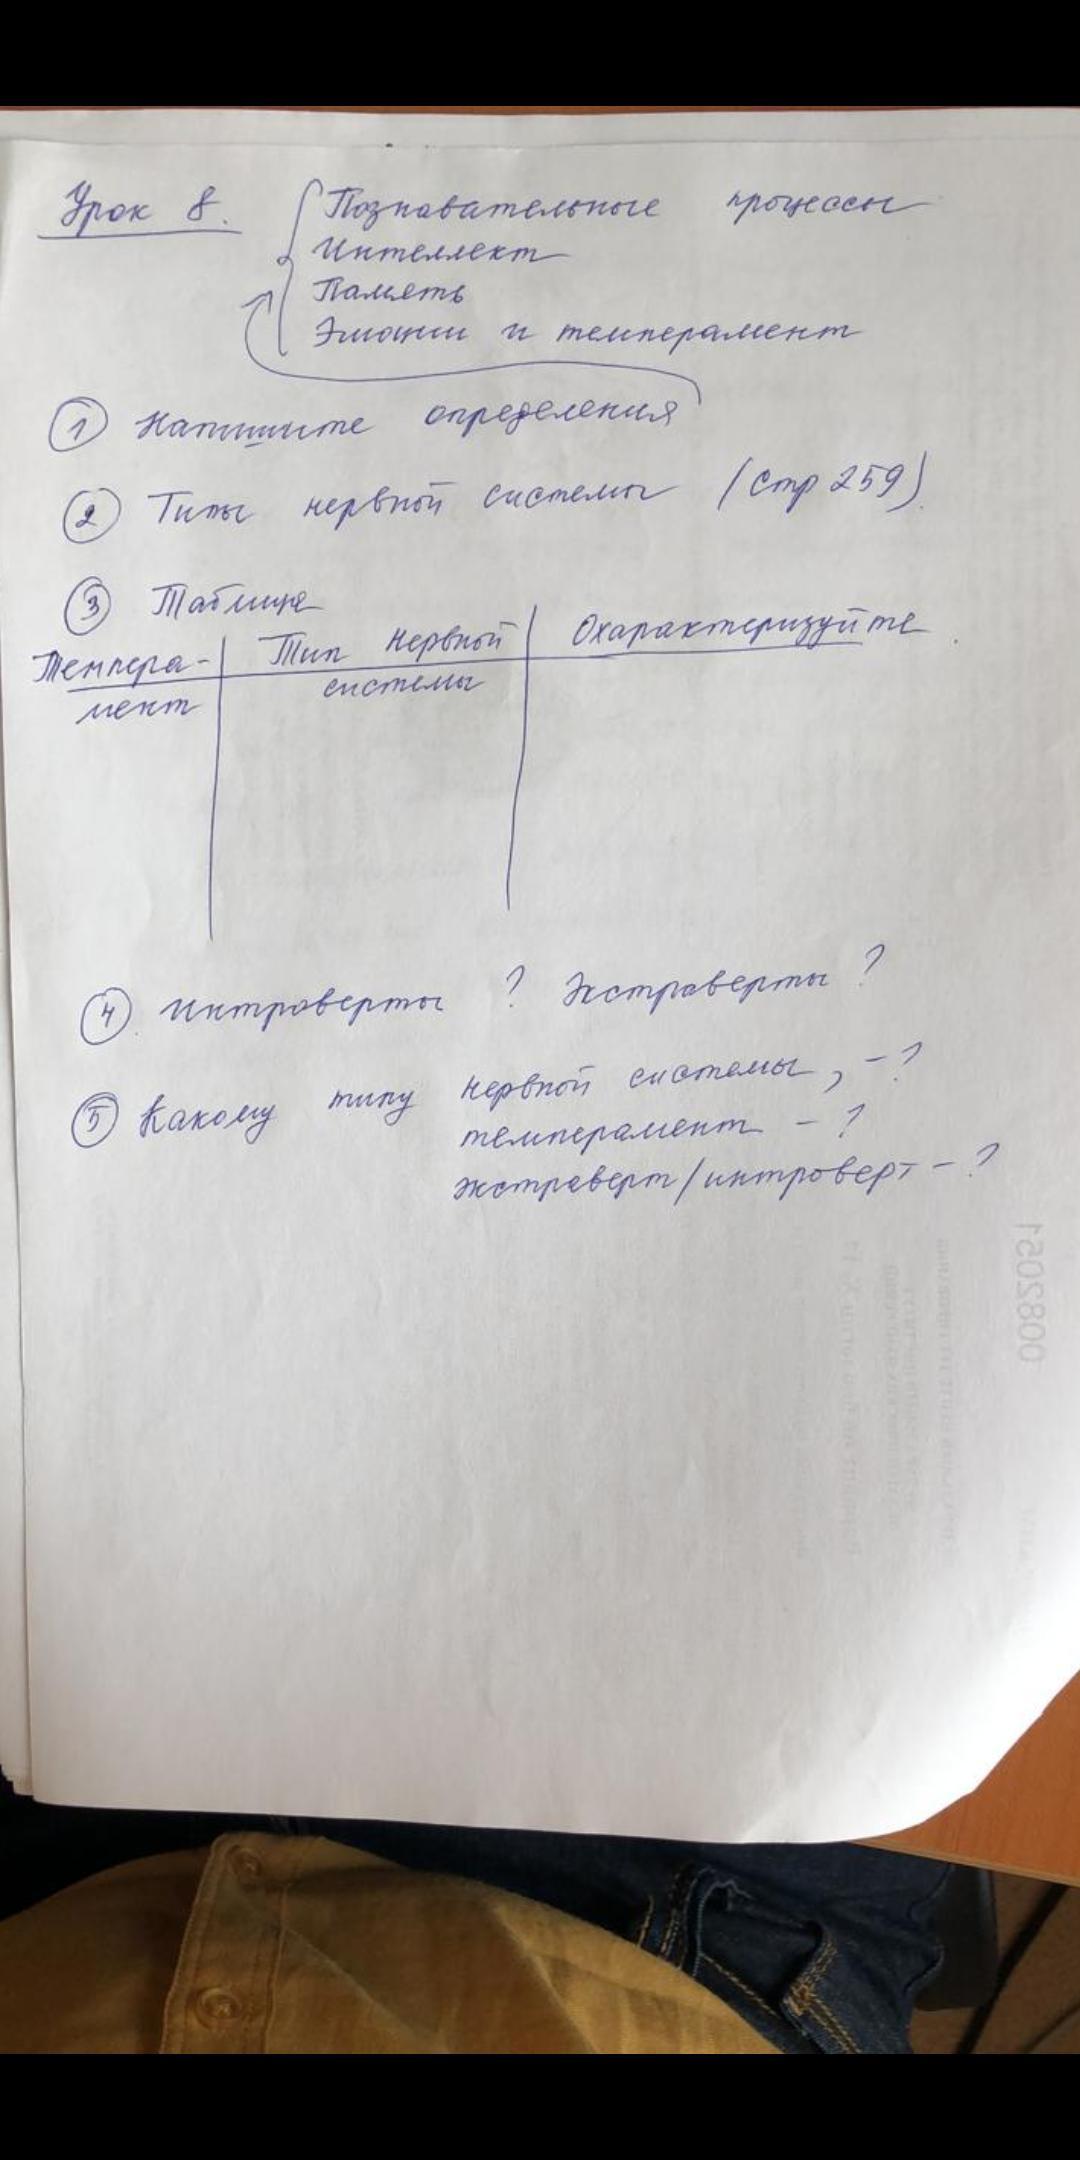 Урок 8. Познавательные процессы
Интеллект
Память
Эмоции и темперамент
1 Напишите определения
2 Типы нервной системы (Стр 259).
3 Таблица
Темпера-мент | Тип нервной системы | Охарактеризуйте
4. Интроверты ? Экстраверты ?
5 Какому типу нервной системы, - ?
темперамент - ?
экстраверт/интроверт - ?
1502800